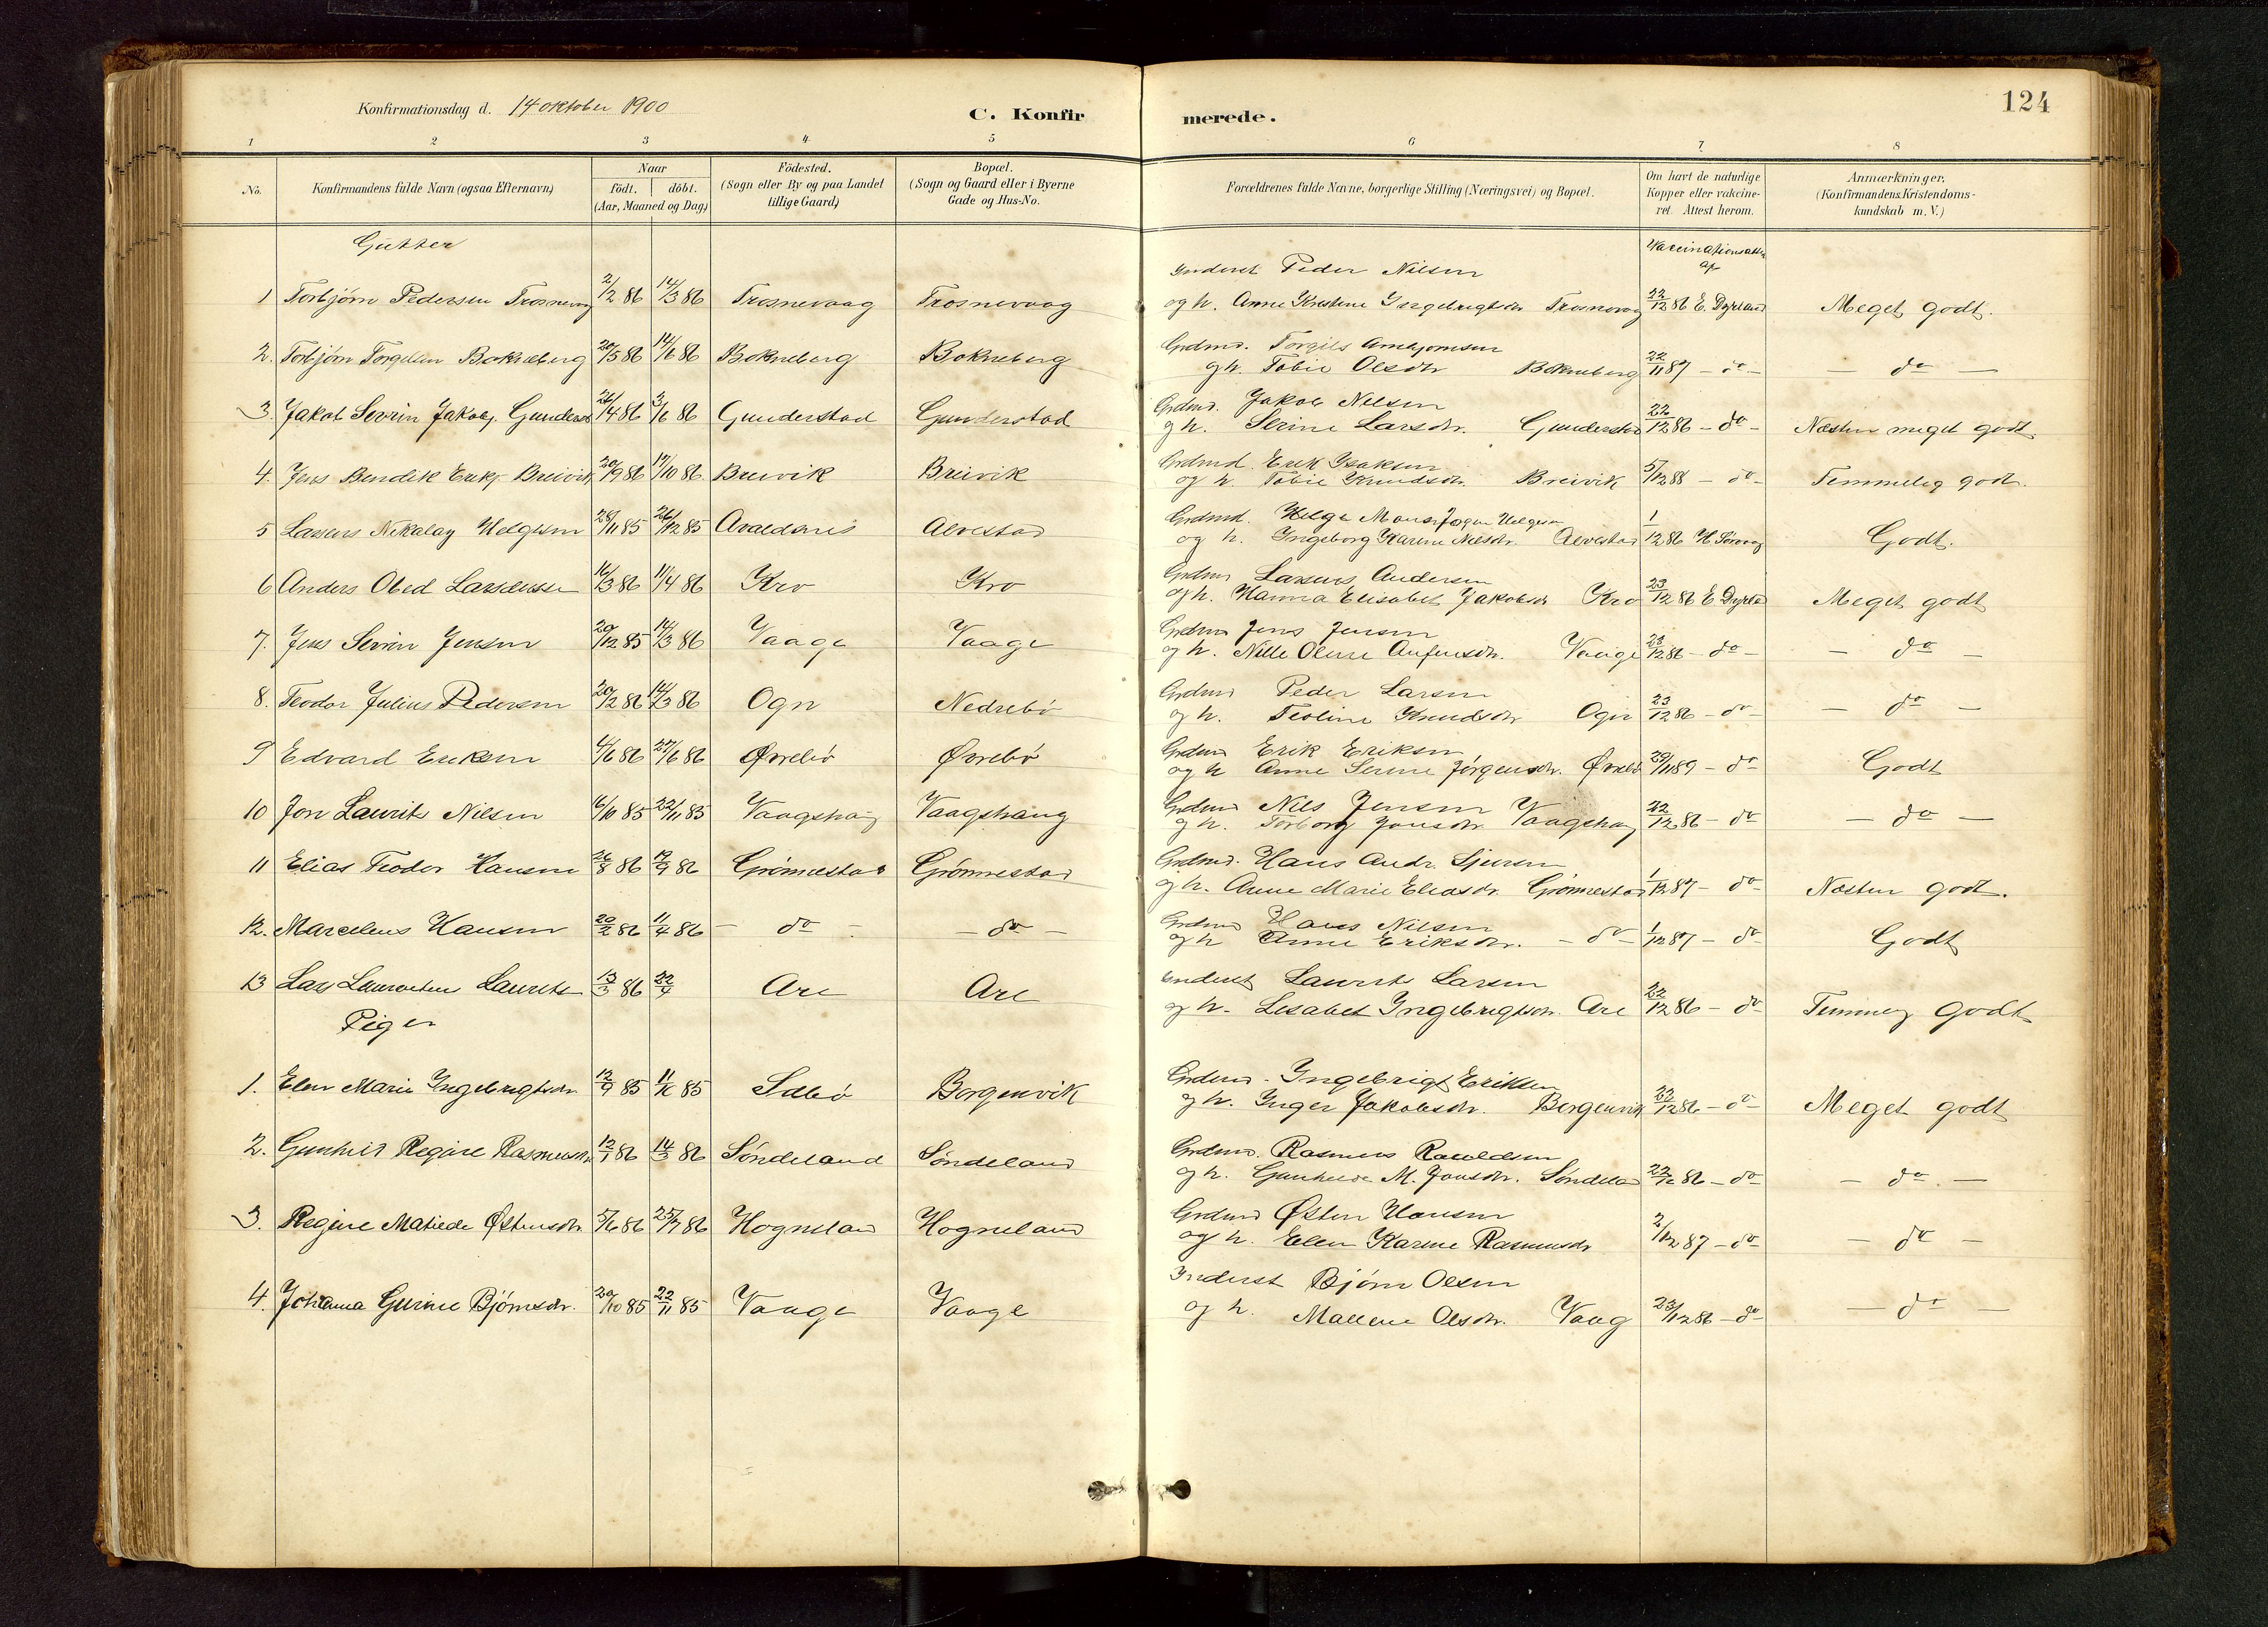 124
Konfirmationsdag d. 14 oktober 1900
C. Konfirmerede.
1 2 3 4 5 6 7 8
No. Konfirmandens fulde Navn (ogsaa Efternavn) Naar födt. döbt. (Aar, Maaned og Dag) Födested. (Sogn eller By og paa Landet tillige Gaard) Bopæl. (Sogn og Gaard eller i Byerne Gade og Hus-No. Forældrenes fulde Navne, borgerlige Stilling (Næringsvei) og Bopæl. Om havt de naturlige Kopper eller vakcineret. Attest herom. Anmærkninger. (Konfirmandens Kristendomskundskab m. V.)
Gutter
Vaccinationsatt. af
Inderst Peder Nilsen
1 Torbjørn Pedersen Trosnevog 2/2 86 14/3 86 Trosnevaag Trosnevaag og h. Anne Kristine Ingebrigtsdr Trosnevog 22/12 86 E. Dyrland Meget godt.
Grdmd. Torgils
2. Torbjørn Torgilsen Bokneberg 20/5 86 14/6 86 Bokneberg Bokneberg og h. Tobie Olsdr Bokneberg 22/11 87 - do - - do -
Grdmd. Jakob Nilsen
3. Jakob Sevrin Jakobs. Gunderst 26/4 86 3/6 86 Gunderstad Gunderstad og h. Serine Larsdr. Gunderstad 22/12 86 - do - Næsten meget godt
Grdmd. Erik Isaksen
4. Jens Bendik Eriks. Breivik 20/9 86 17/10 86 Breivik Breivik og h. Tobie Knudsdr. Breivik 5/12 88 - do - Temmelig godt.
Grdmd. Helge Mons Helgesen
5 Lassens Nikolay Helgesen 28/11 85 26/12 85 Avaldsnes Alvestad og h. Ingeborg Karine Nilsdr. Alvestad 1/12 86 H Sørvaag Godt.
Grdmd Lassens Andersen
6 Anders Obed Lassensen 16/3 86 11/4 86 Kro Kro og h. Hanna Elisabet Jakobsdr Kro 23/12 86 E Dyrla Meget godt
Grdmd Jens Jensen
7. Jens Sevrin Jensen 20/12 85 14/3 86 Vaage Vaage og h. Nille Oline Anfinsdr. Vaage 23/12 86 - do - - do -
Grdmd Peder Larsen
8. Teodor Julius Pedersen 20/2 86 14/3 86 Ogn Nedrebö og h. Teoline Knudsdr Ogn 23/12 86 - do - - do -
Grdmd Erik Eriksen
9 Edvard Eriksen 4/6 86 27/6 86 Øvrebö Øvrebö og h Anne Serine Jörgensdr. Øvrebö 29/11 89 - do Godt
Grdmd Nils Jensen
10 Jon Laurits Nilsen 16/10 85 22/11 85 Vaagshaug Vaagshaug og h. Torborg Jonsdr. Vaagshaug 22/12 86 - do - do -
Grdmd. Hans Andr. Sjursen
11 Elias Teodor Hansen 26/8 86 12/9 86 Grönnestad Grönnestad og h. Anne Marie Eliasdr. Grönnestad 1/12 87 - do Næsten godt.
Grdmd Hans Nilsen
12. Marcelius Hansen 20/2 86 11/4 86 - do - - do - og h Anne Eriksdr. - do - 1/12 87 - do Godt
Inderst Laurits Larsen
13 Lars Laurits 13/3 86 22/4 Are Are og h. Lisabet Ingebrigtsdr. Are 22/12 86 - do Temmelig Godt
Piger
Grdmd. Ingebrigt Eriksen
1. Elen Marie Ingebrigtsdr 12/9 85 11/10 85 Sæbö Borgenvik og h. Inger Jakobsdr. Borgenvik 22/12 86 - do - Meget godt
Grdmd. Rasmus
2. Gunhild Regine Rasmusdr 12/1 86 14/3 86 Söndeland Söndeland og h. Gunhilde M. Jonsdr. Söndeland 22/12 86 - do - do -
Grdmd Østen Hansen
3. Regine Matilde Østensdr. 5/6 86 25/7 86 Hogneland Hogneland og h. Elen Karine Rasmusdr 2/12 87 - do - do -
Inderst Bjørn Olsen
4. Johanna Gurine Bjørnsdr. 20/10 85 22/11 85 Vaage Vaage og h. Mallene Olsdr. Vaag 23/12 86 - do - do -